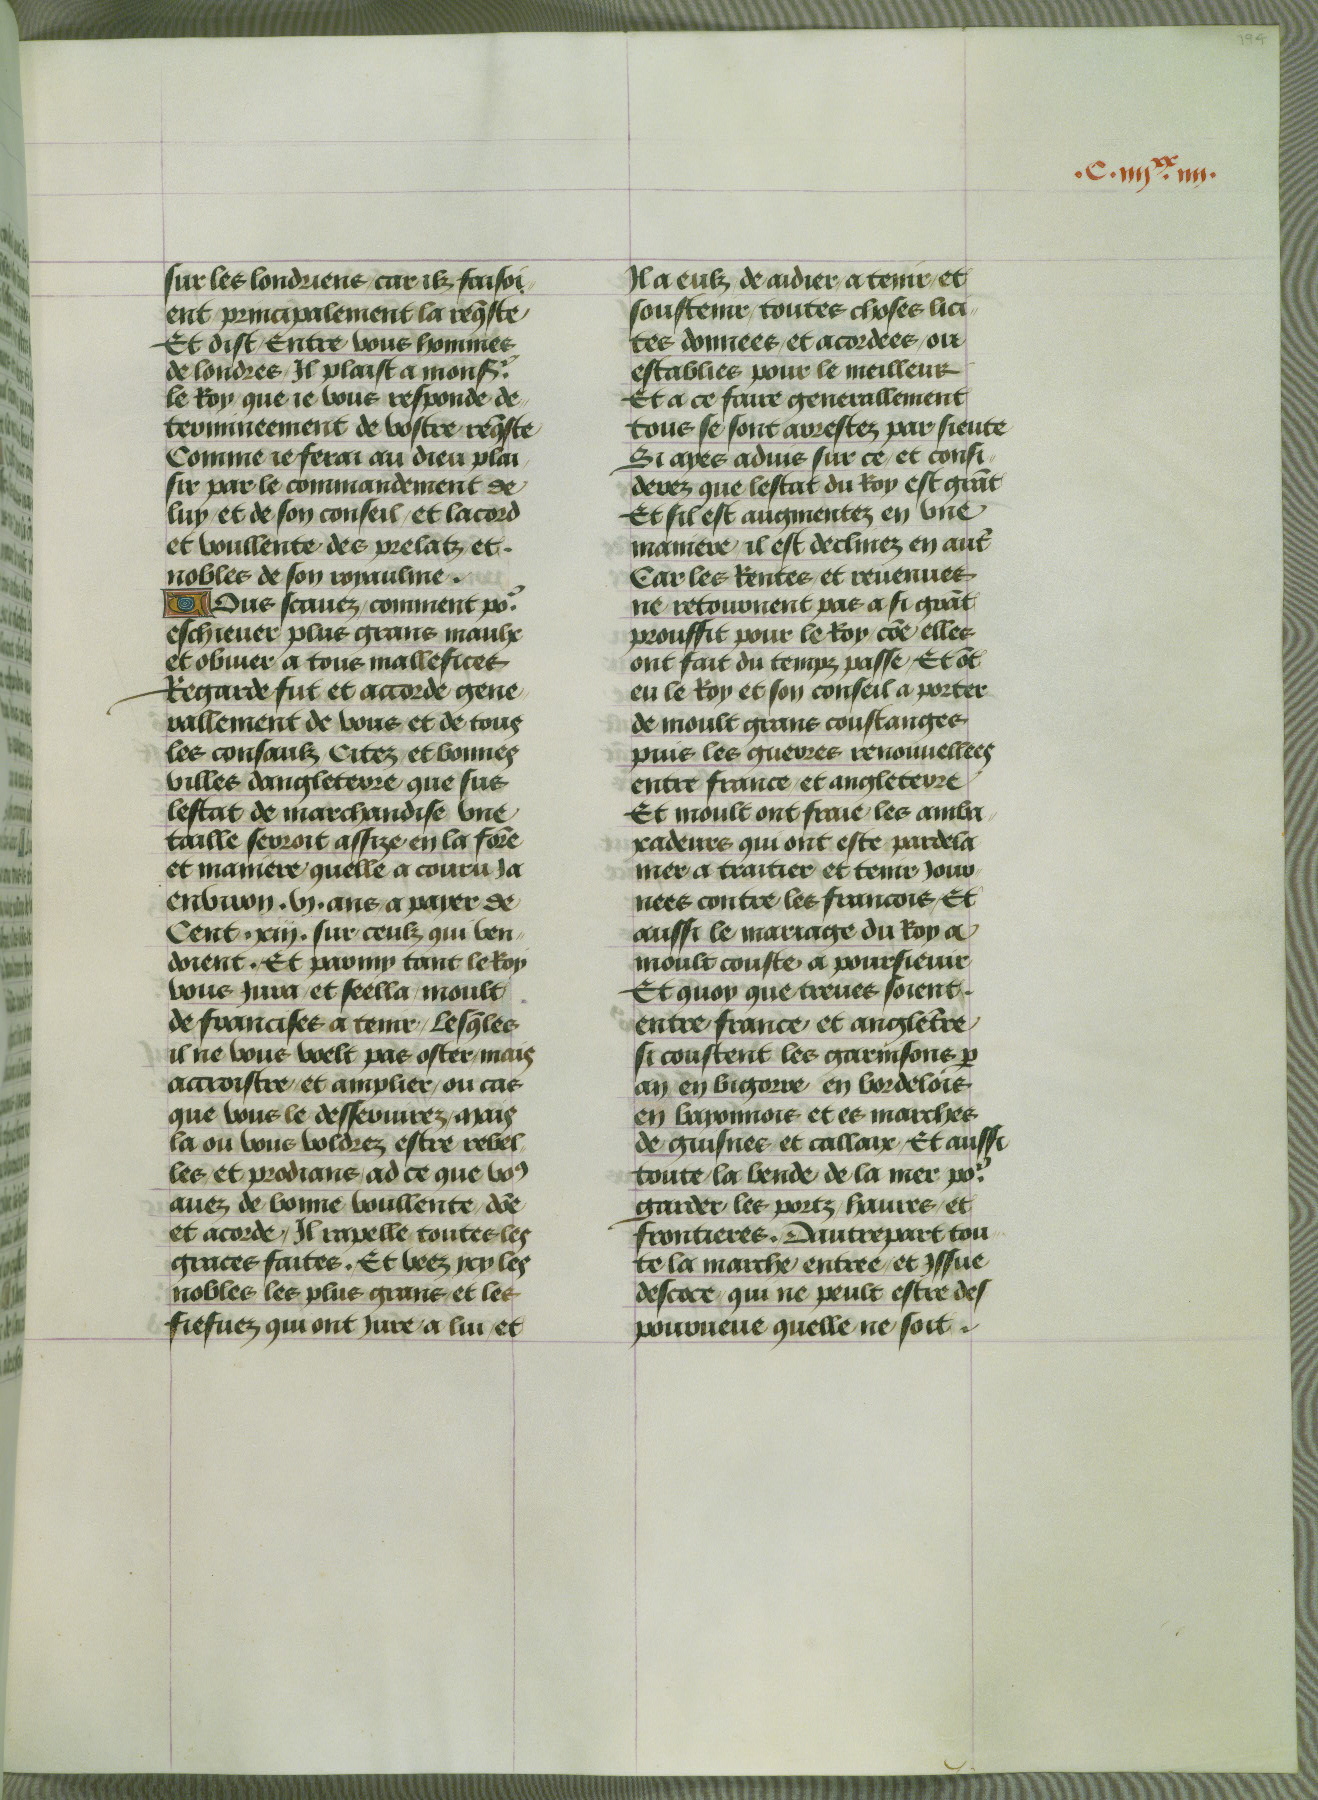 194
.C.iiijxx.iiij.
sur les londriens car ilz faisoi,,
ent principalement la req̃ste
Et dist Entre vous hommes
de londres Il plaist a monsr
le Roy que ie vous responde de,,
termineement de vostre req̃ste
Comme ie ferai au dieu plai,,
sir par le commandement de
luy et de son conseil / et lacord
et voullente des prelatz et.
nobles de son royaulme.
Ous scauez comment por
eschieuer plus grans maulx
et obuier a tous mallefices
Regarde fut et accorde gene,,
rallement de vous et de tous
les consaulz Citez et bonnes
villes dangleterre que sus
lestat de marchandise vne
taille seroit assize en la forẽ
et maniere quelle a couru Ja
enuiron .vj. ans a payer de
Cent .xiij. sur ceulz qui ven,,
doient. Et parmy tant le Roy
vous Jura et seella moult
de francises a tenir / Lesq̃les
il ne vous voelt pas oster mais
accroistre et amplier ou cas
que vous le desseruirez / mais
la ou vous voldrez estre rebel,,
les et prodians ad ce que vo9
auez de bonne voullente dõe
et acorde / Il rapelle toutes les
graces faites. Et veez jcy les
nobles les plus grans et les
fiefuez qui ont Jure a lui et
Il a eulz de aidier a tenir et
soustenir toutes choses lici,,
tes donnees et acordees ou
establies pour le meilleur
Et a ce faire generallement
tous se sont arrestez par sieute
Si ayes aduis sur ce et consi,,
derez que lestat du Roy est grãt
Et sil est augmentez en vne
maniere il est declinez en autr̃
Car les Rentes et reuenues
ne retournent pas a si grãt
prouffit pour le Roy cõe elles
ont fait du tempz passe / Et õt
eu le Roy et son conseil a porter
de moult grans coustanges
puis les guerres renouuellees
entre france et angleterre
Et moult ont fraie les amba,,
xadeurs qui ont este pardela
mer a traitier et tenir Jour,,
nees contre les francois Et
aussi le mariage du Roy a
moult couste a poursieuir
Et quoy que treues soient.
entre france et angletr̃re
si coustent les garnisons p̱
an en bigorre en bordelois
en bayonnois et es marches
de guisnes et callaix / Et aussi
toute la bende de la mer por
garder les portz haures et
frontieres. Dautrepart tou,,
te la marche entree et Jssue
descoce qui ne peult estre des
pourueue quelle ne soit.